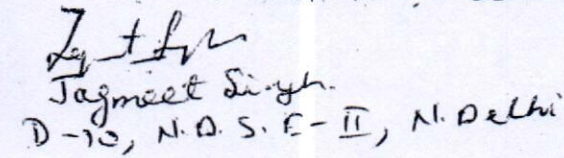 Jagmeet Singh.
D-70, N.D.S.E-II, N. Delhi